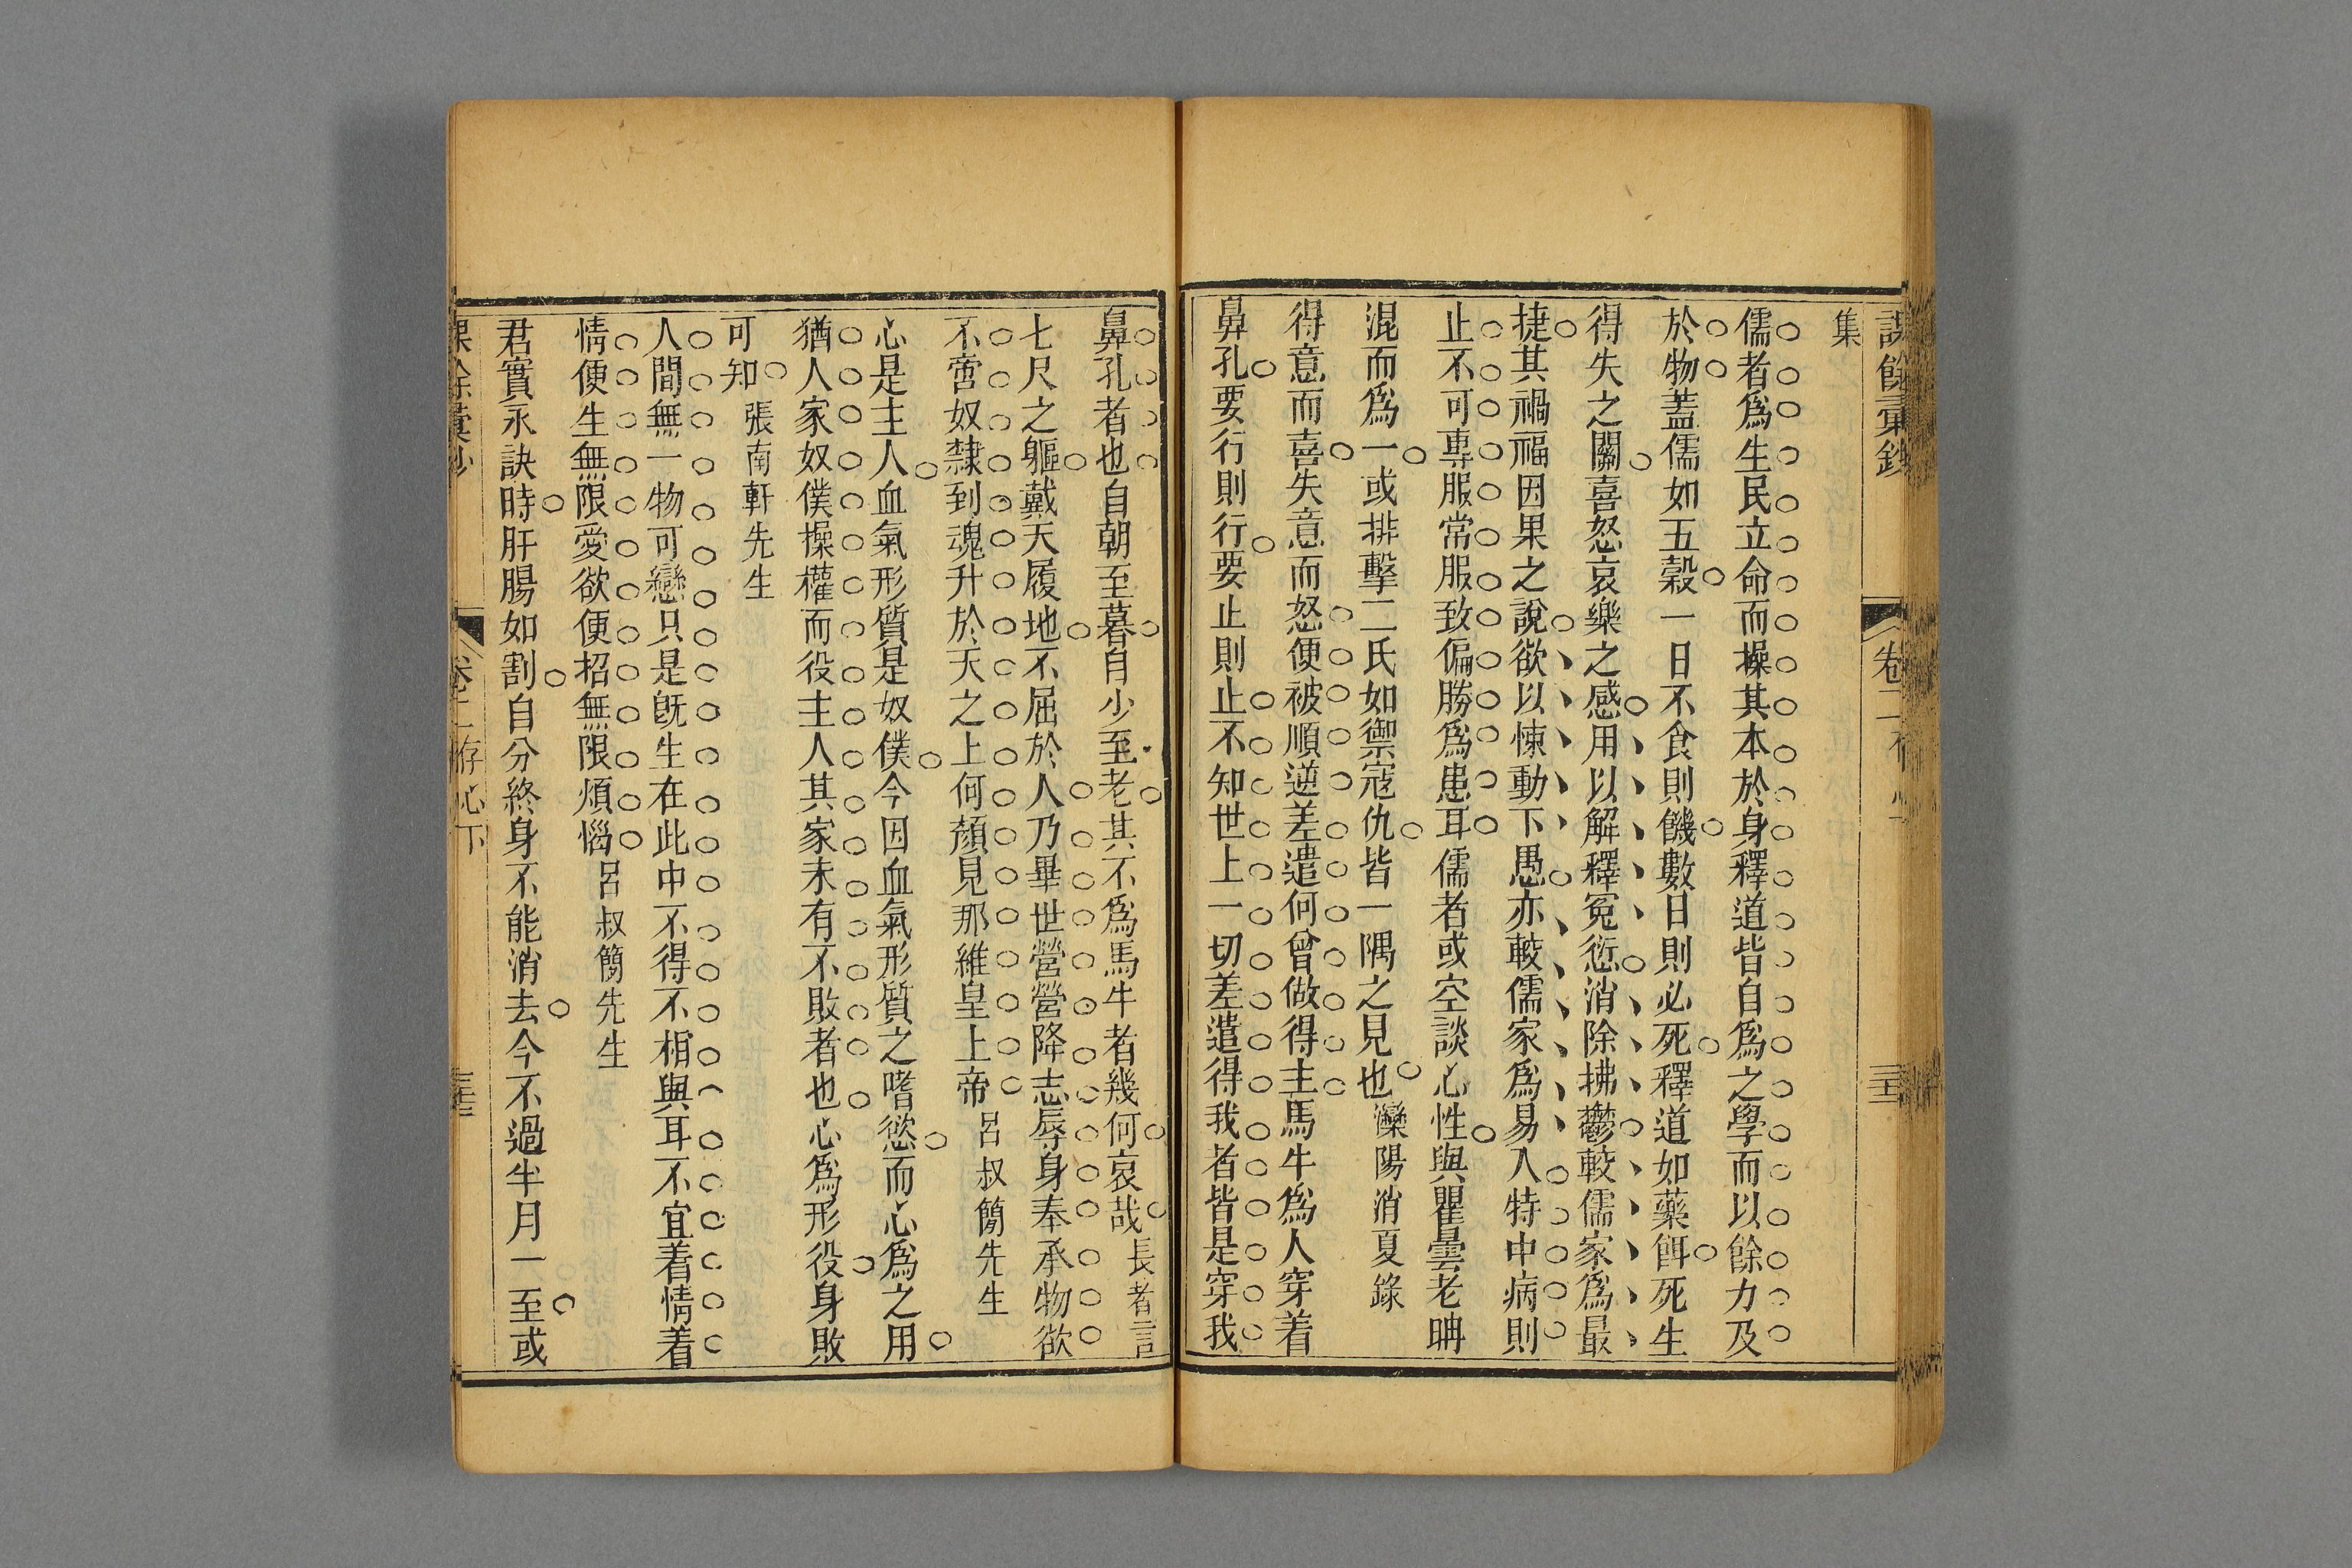 課餘彙鈔
卷二
集
儒者爲生民立命而操其本於身釋道皆自爲之學而以餘力及
於物蓋儒如五穀一日不食則饑數日則必死釋道如藥餌死生
得失之關喜怒哀樂之感用以解釋冤愆消除拂鬱較儒家爲最
捷其禍福因果之說欲以悚動下愚亦較儒家爲易入特中病則
止不可專服常服致偏勝爲患耳儒者或空談心性與瞿曇老聃
混而爲一或排擊二氏如禦寇仇皆一隅之見也灤陽消夏錄
得意而喜失意而怒便被順逆差遣何曾做得主馬牛爲人穿着
鼻孔要行則行要止則止不知世上一切差遣得我者皆是穿我
鼻孔者也自朝至暮自少至老其不爲馬牛者幾何哀哉長者言
七尺之軀戴天履地不屈於人乃畢世營營降志辱身奉承物欲
不啻奴隸到魂升於天之上何顏見那維皇上帝呂叔簡先生
心是主人血氣形質是奴僕今因血氣形質之嗜慾而心爲之用
猶人家奴僕操權而役主人其家未有不敗者也心爲形役身敗
可知張南軒先生
人間無一物可戀只是既生在此中不得不相與耳不宜着情着
情便生無限愛欲便招無限煩惱呂叔簡先生
君實永訣時肝腸如割自分終身不能消去今不過半月一至或
課餘彙鈔
卷二存心下